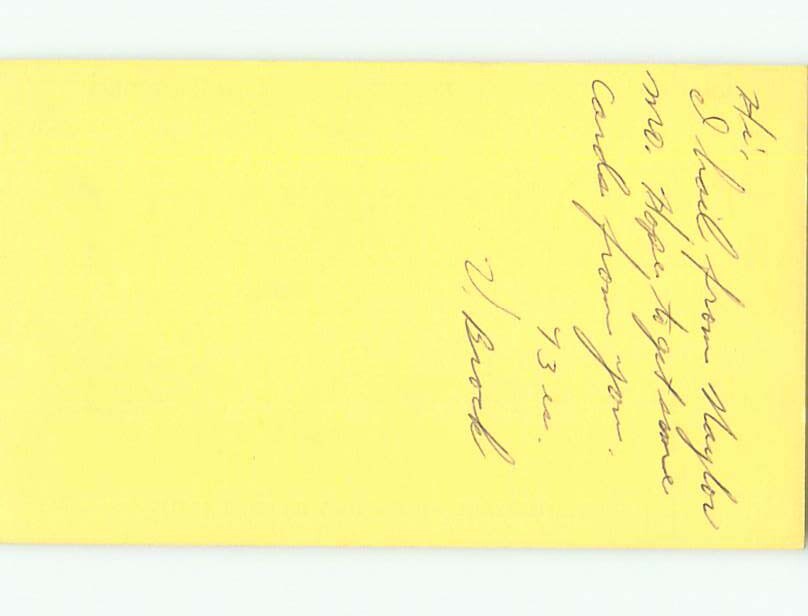 Hi,
I hail from Naylor
Mo. Hope to get some
Cards from you.
73 es.
V. Brock